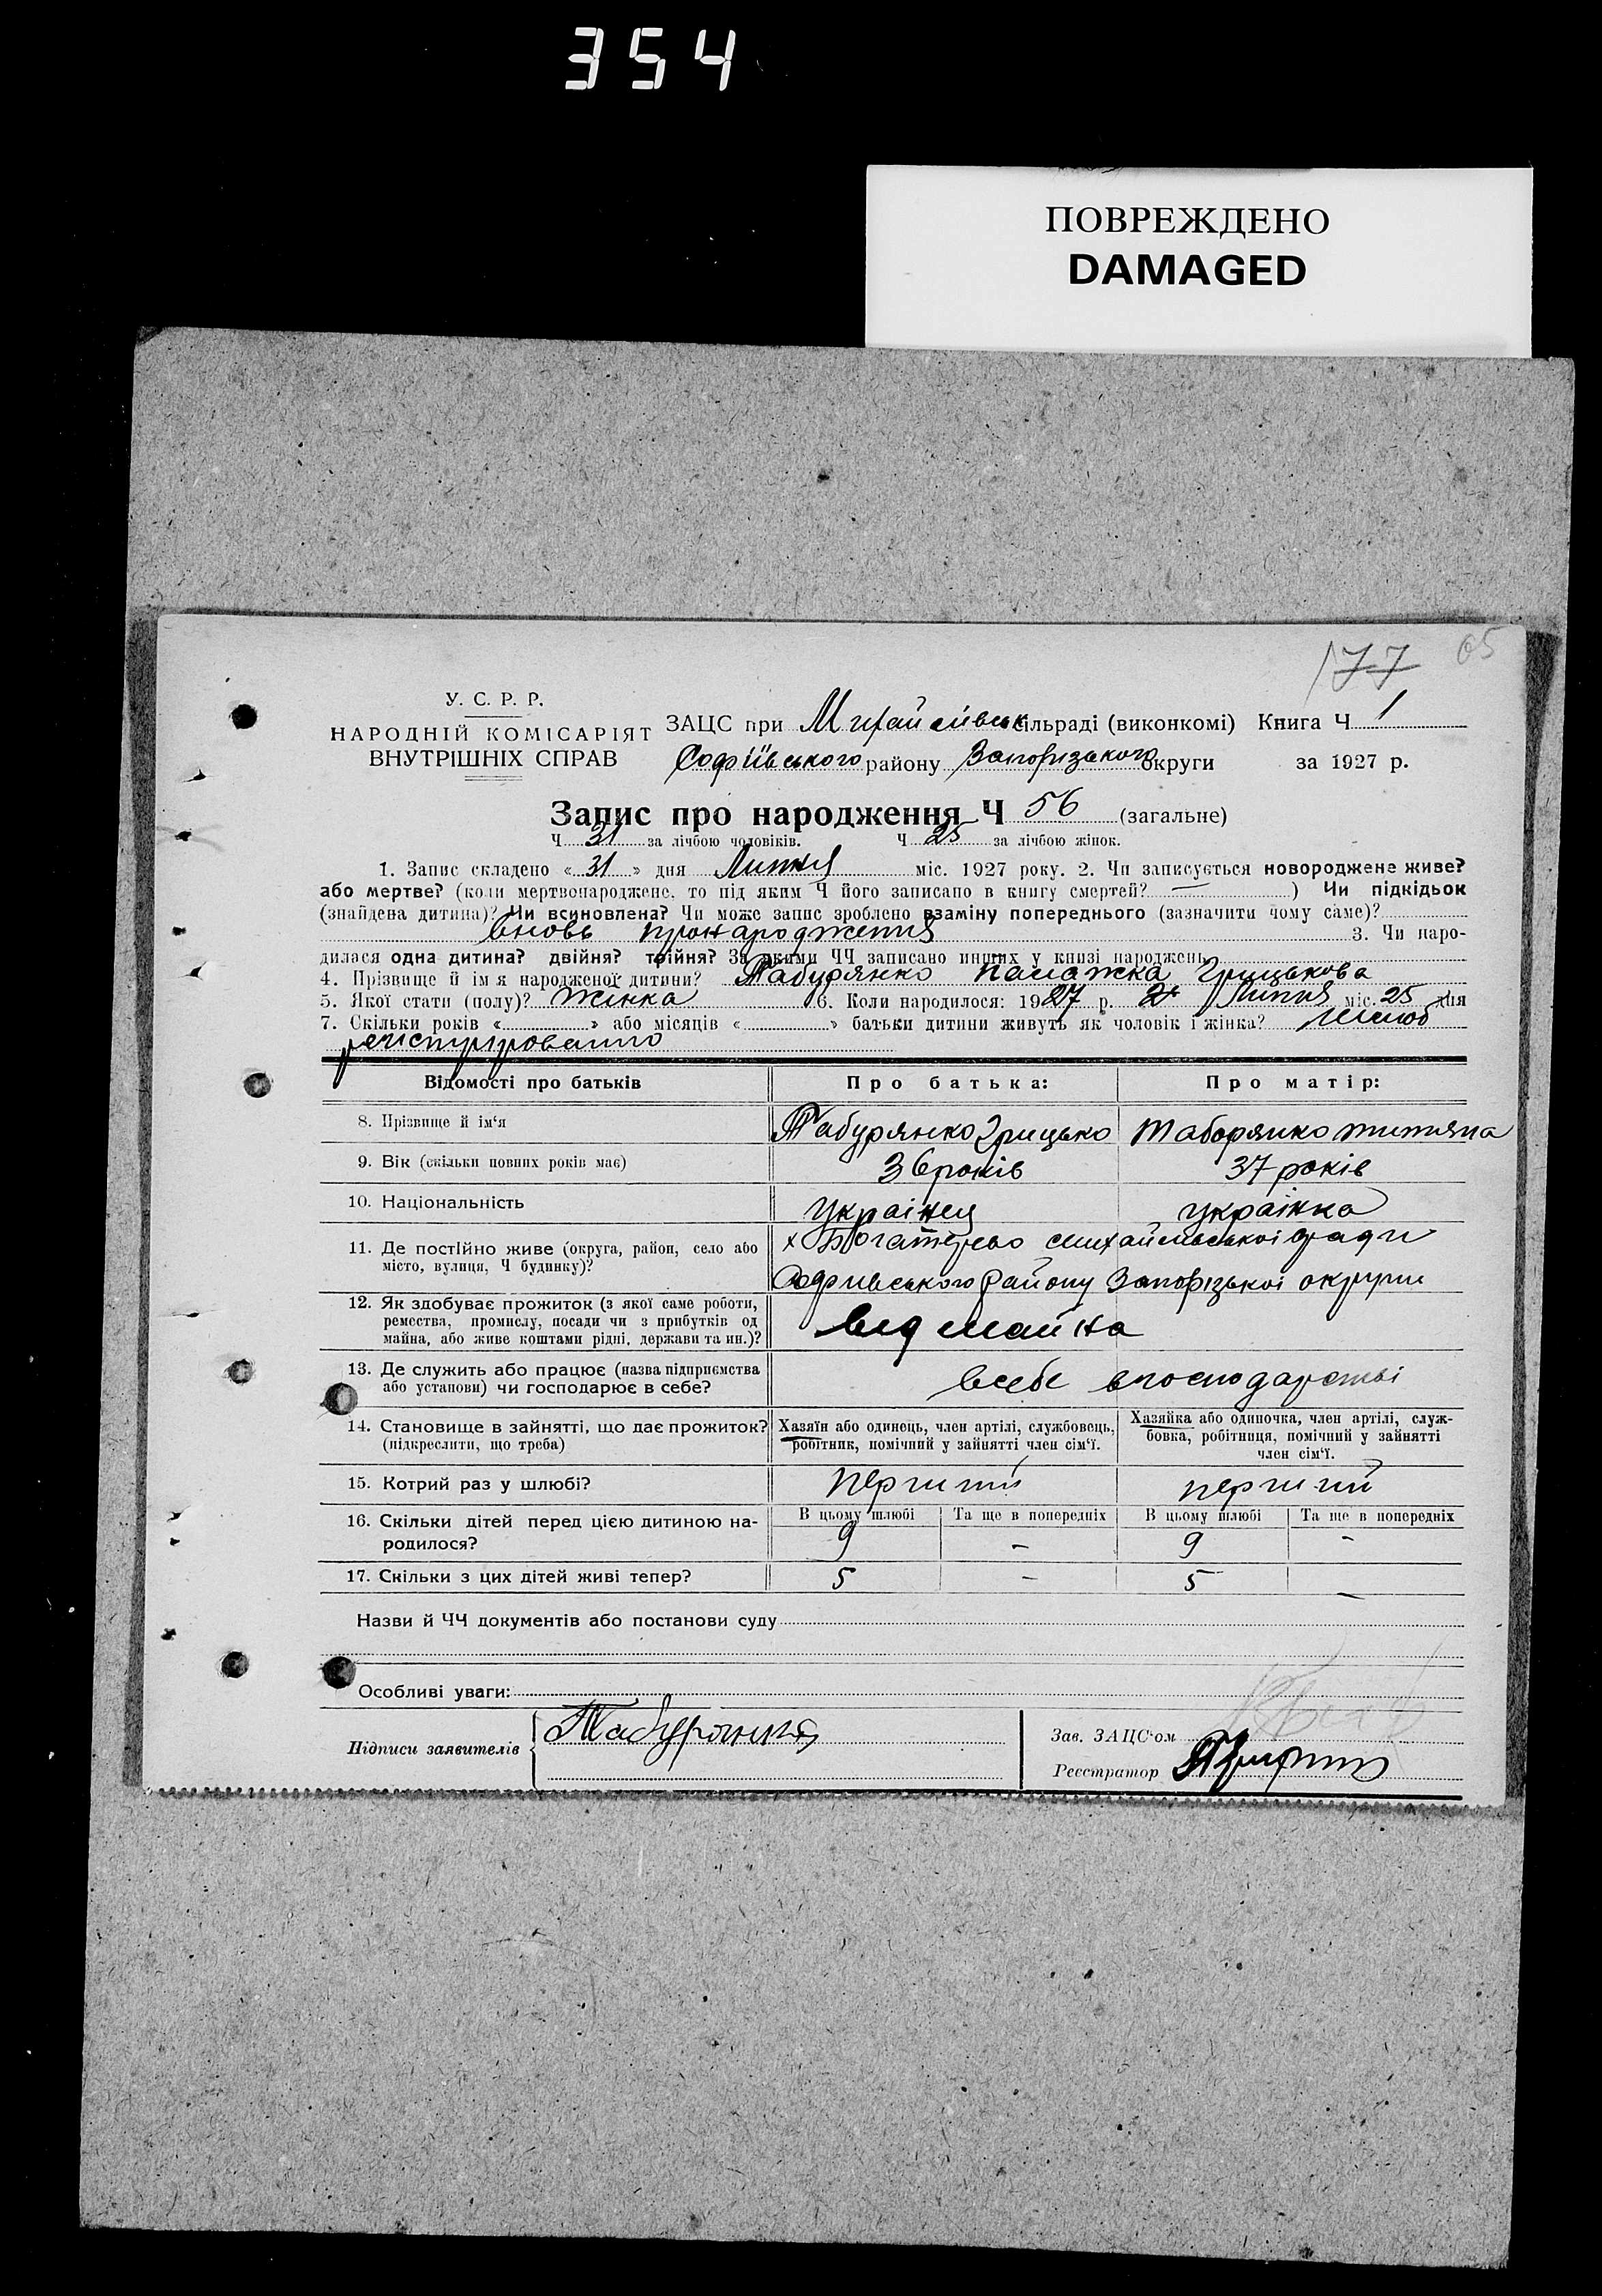 354
ПОВРЕЖДЕНО
DAMAGED
177 65
У. С. Р. Р.
НАРОДНІЙ КОМІСАРІЯТ
ВНУТРІШНІХ СПРАВ
ЗАЦС при Михайлівськ сільраді (виконкомі) Книга Ч 1
Софіївського району Запорізького округи за 1927 р.
Запис про народження Ч 56 (загальне)
Ч 31 за лічбою чоловіків. Ч 25 за лічбою жінок.
1. Запис складено « 31 » дня Липня міс. 1927 року. 2. Чи записується новороджене живе?
або мертве? (коли мертвонароджене, то під яким Ч його записано в книгу смертей? — ) Чи підкідьок
(знайдена дитина)? Чи всиновлена? Чи може запис зроблено взаміну попереднього (зазначити чому саме)?
вновь пронародження 3. Чи наро-
дилася одна дитина? двійня? трійня? За якими ЧЧ записано инших у книзі народжень
4. Прізвище й ім'я народженої дитини? Табурянко Палажка Грицькова
5. Якої стати (полу)? Жінка 6. Коли народилося: 1927 р. Липня міс. 25 дня
7. Скільки років « » або місяців « » батьки дитини живуть як чоловік і жінка? шлюб
регістріровано
Відомості про батьків Про батька: Про матір:
8. Прізвище й ім'я Табурянко Грицько Таборянко
9. Вік (скільки повних років має) 36 років 37 років
10. Національність Українец українка
11. Де постійно живе (округа, район, село або
місто, вулиця, Ч будинку)?
х Богатирьво Михайлівської ради
Софиевського району Запорізької округи
12. Як здобуває прожиток (з якої саме роботи,
ремества, промислу, посади чи з прибутків од
майна, або живе коштами рідні, держави та ин.)?
вид майна
13. Де служить або працює (назва підприємства
або установи) чи господарює в себе?
всебе вгосподарстві
14. Становище в зайнятті, що дає прожиток?
(підкреслити, що треба)
Хазяїн або одинець, член артілі, службовець,
робітник, помічний у зайнятті член сім'ї.
Хазяйка або одиночка, член артілі, служ-
бовка, робітниця, помічний у зайнятті
член сім'ї.
15. Котрий раз у шлюбі? перший перший
16. Скільки дітей перед цією дитиною на-
родилося?
В цьому шлюбі Та ще в попередніх В цьому шлюбі Та ще в попередніх
9 – 9 –
17. Скільки з цих дітей живі тепер? 5 – 5 –
Назви й ЧЧ документів або постанови суду
Особливі уваги:
Підписи заявителів Табурянко
Зав. ЗАЦС'ом
Реєстратор